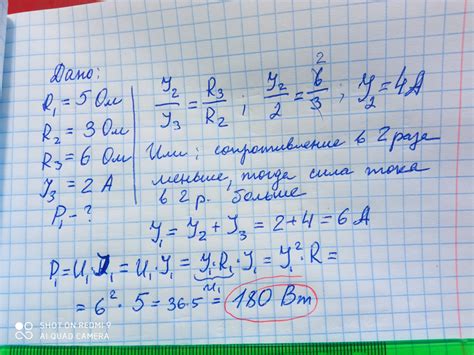 Дано:
R₁ = 5 Ом
R₂ = 3 Ом
R₃ = 6 Ом
У₃ = 2 А
P₁ - ?
У₂/У₃ = R₃/R₂ ; У₂/2 = 6/3 ; У₂ = 4 А
2
Или: сопротивление в 2 раза
меньше, тогда сила тока
в 2 р. больше
У₁ = У₂ + У₃ = 2 + 4 = 6 А
P₁ = U₁ У₁ = U₁ · У₁ = У₁ · R₁ · У₁ = У₁² · R =
U₁
= 6² · 5 = 36·5 = 180 Вт
SHOT ON REDMI 9
AI QUAD CAMERA